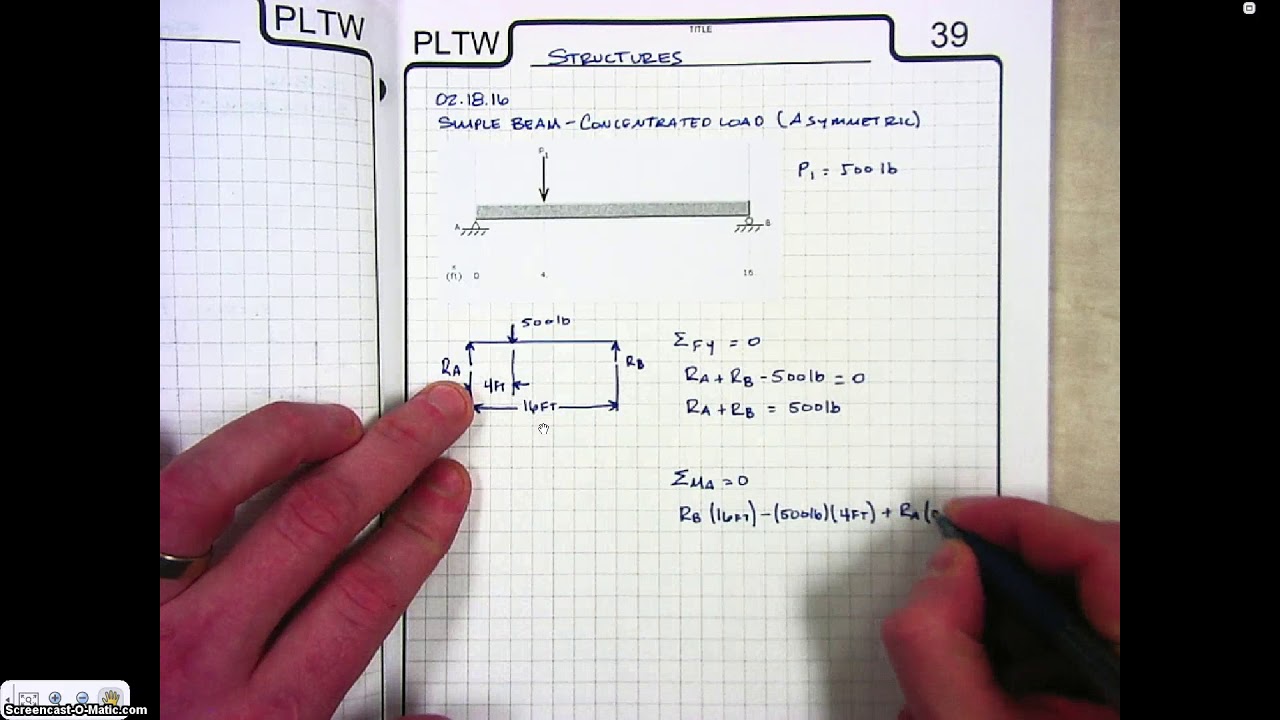 PLTW
PLTW
TITLE
39
STRUCTURES
02.18.16
SIMPLE BEAM - CONCENTRATED LOAD (ASYMMETRIC)
P1
P1 = 500 lb
A
B
x
(ft)
0
4
16
500 lb
RA
RB
4FT
16FT
ΣFY = 0
RA + RB - 500 lb = 0
RA + RB = 500 lb
ΣMA = 0
RB (16FT) - (500 lb)(4FT) + RA (
Screencast-O-Matic.com